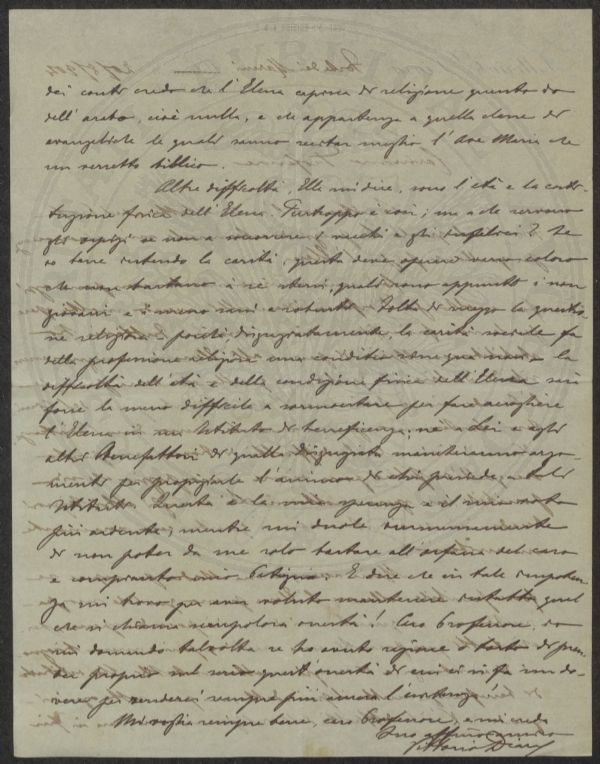 dei conti credo che l'Elena capisca di religione quanto io
dell'arabo, cioè nulla, e che appartenga a quella classe di
evangeliche le quali sanno recitar meglio l'Ave Maria che
un versetto biblico.
Altre difficoltà, Ella mi dice, sono l'età e la costi-
tuzione fisica dell'Elena. Purtroppo è così; ma a che servono
gli ospizi se non a soccorrere i vecchi e gli infelici? Se
io bene intendo la carità, questa deve operare verso coloro
che non bastano a sè stessi, quali sono appunto i non
giovani e i meno sani e robusti. Tolta di mezzo la questio-
ne religiosa - poichè, disgraziatamente, la carità sociale fa
della professione religiosa una conditio sine qua non - la
difficoltà dell'età e della condizione fisica dell'Elena sarà
forse la meno difficile a sormontare per fare accogliere
l'Elena in un Istituto di beneficenza, nè a Lei e agli
altri Benefattori di quella disgraziata mancheranno argo-
menti per propiziarle l'animo di chi presiede a tali
Istituti. Questa è la mia speranza e il mio voto
più ardente, mentre mi duole immensamente
di non poter da me solo bastare all'orfana del caro
e compianto mio Patrigno. E dire che in tale impoten-
za mi trovo per aver voluto mantenere intatto quel
che si chiama scrupolosa onestà! Caro Professore, io
mi domando talvolta se ho avuto ragione o torto di pren-
der proprio sul serio quest'onestà di cui ci si fa un do-
vere per renderci sempre più amara l'esistenza!
Mi voglia sempre bene, caro Professore, e mi creda
Suo affmo amico
Vittorio